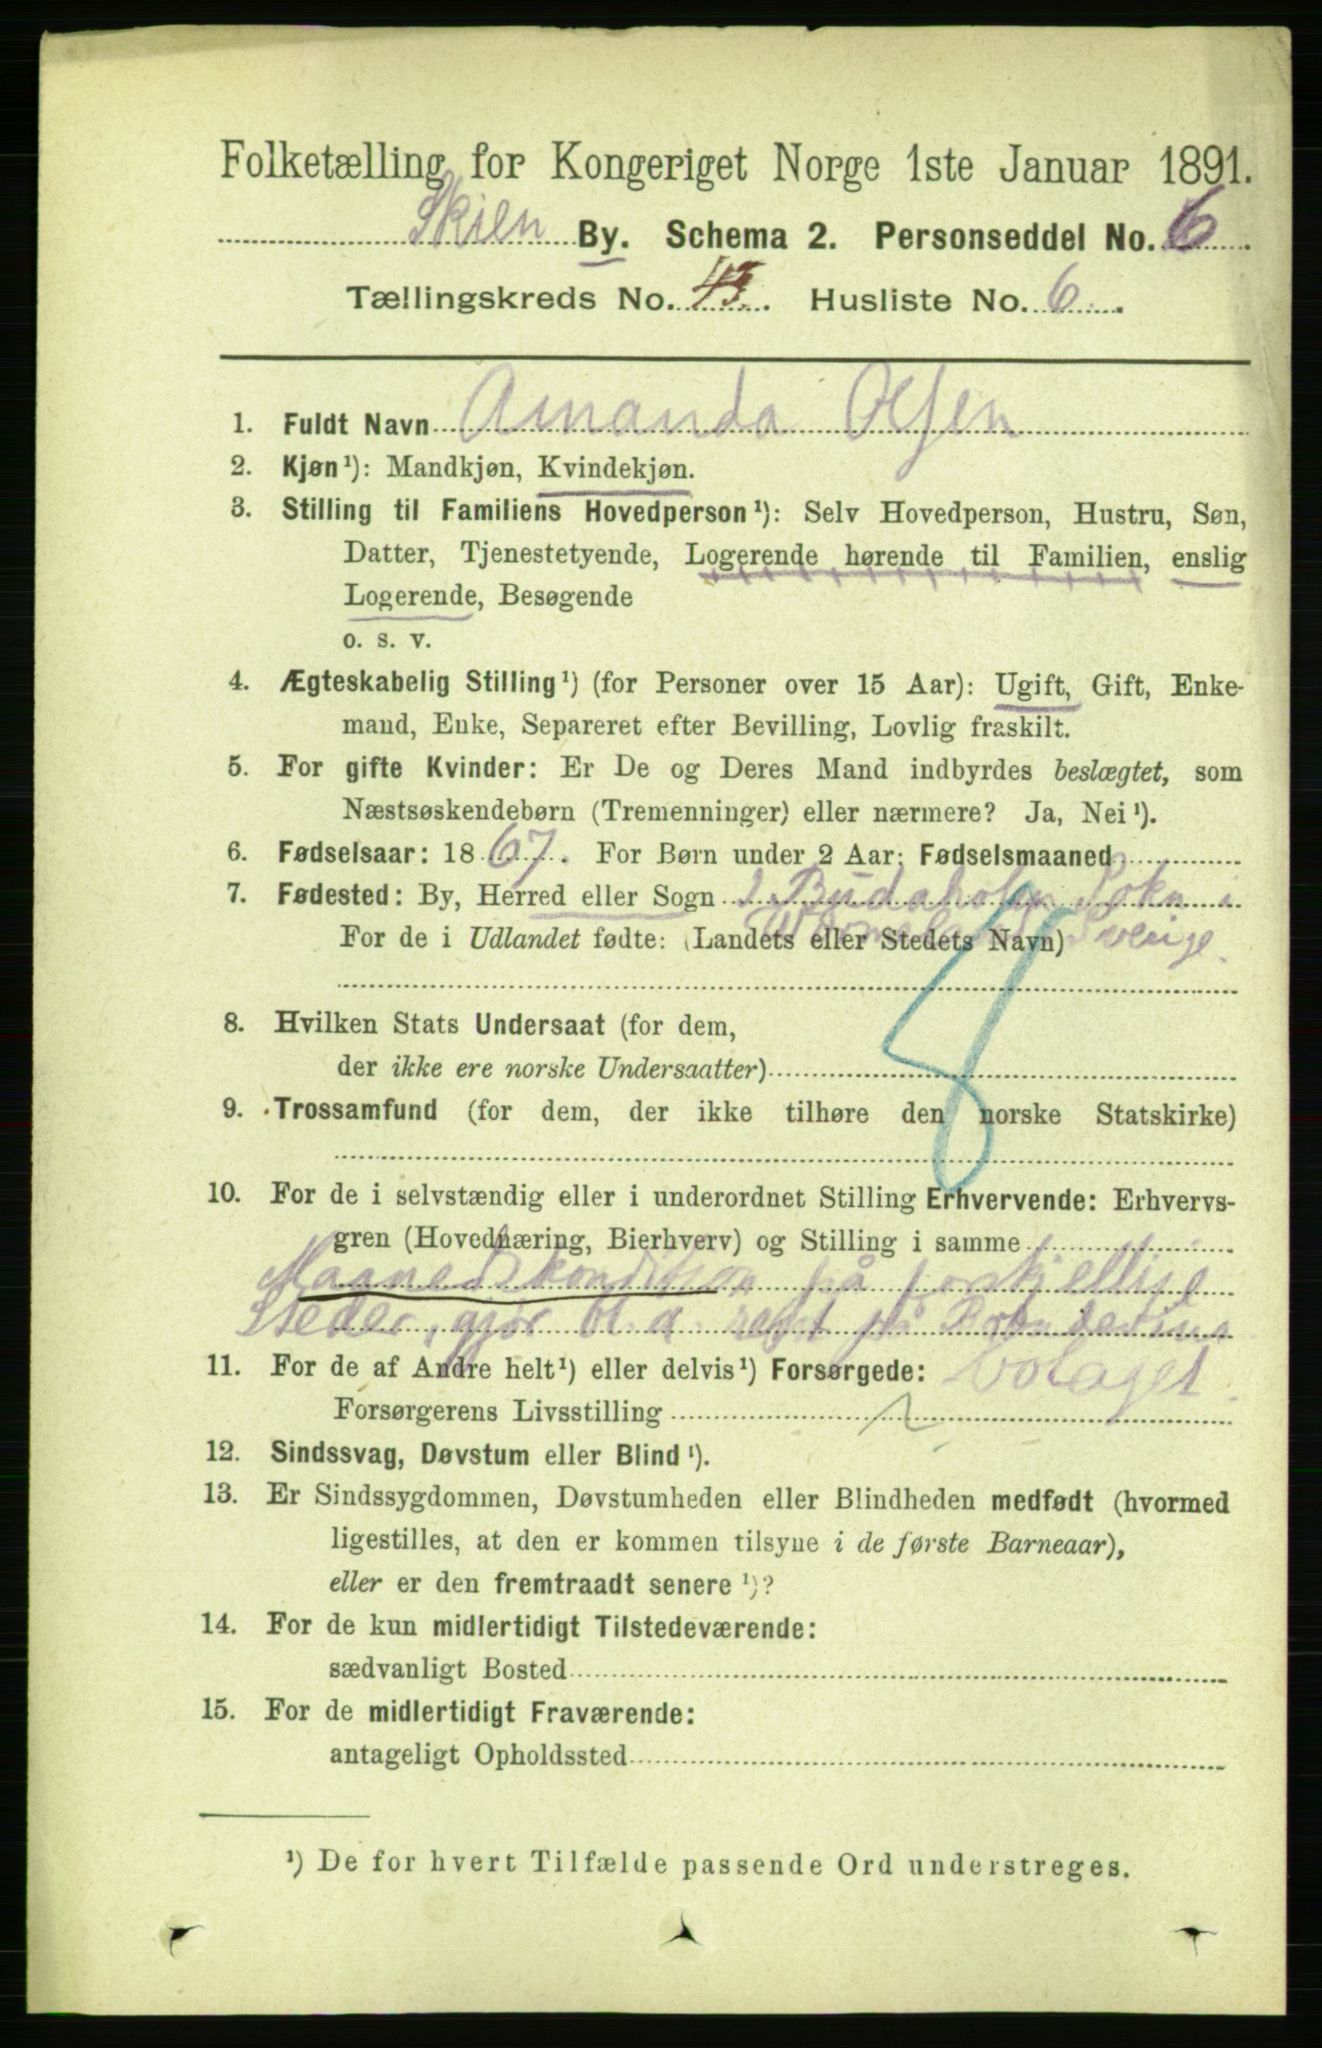 Folketælling for Kongeriget Norge 1ste Januar 1891.
Skien By. Schema 2. Personseddel No. 6.
Tællingskreds No. 43. Husliste No. 6.
1. Fuldt Navn Amanda Olsen
2. Kjøn¹): Mandkjøn, Kvindekjøn.
3. Stilling til Familiens Hovedperson¹): Selv Hovedperson, Hustru, Søn,
Datter, Tjenestetyende, Logerende hørende til Familien, enslig
Logerende, Besøgende
o. s. v.
4. Ægteskabelig Stilling¹) (for Personer over 15 Aar): Ugift, Gift, Enke-
mand, Enke, Separeret efter Bevilling, Lovlig fraskilt.
5. For gifte Kvinder: Er De og Deres Mand indbyrdes beslægtet, som
Næstsøskendebørn (Tremenninger) eller nærmere? Ja, Nei¹).
6. Fødselsaar: 1867. For Børn under 2 Aar: Fødselsmaaned
7. Fødested: By, Herred eller Sogn Sokn i
For de i Udlandet fødte: (Landets eller Stedets Navn) Sverige.
8. Hvilken Stats Undersaat (for dem,
der ikke ere norske Undersaatter)
9. Trossamfund (for dem, der ikke tilhøre den norske Statskirke)
10. For de i selvstændig eller i underordnet Stilling Erhvervende: Erhvervs-
gren (Hovednæring, Bierhverv) og Stilling i samme
på forskjellige
Steder, gjør bl. a. rent på
11. For de af Andre helt¹) eller delvis¹) Forsørgede:
Forsørgerens Livsstilling
12. Sindssvag, Døvstum eller Blind¹).
13. Er Sindssygdommen, Døvstumheden eller Blindheden medfødt (hvormed
ligestilles, at den er kommen tilsyne i de første Barneaar),
eller er den fremtraadt senere¹)?
14. For de kun midlertidigt Tilstedeværende:
sædvanligt Bosted
15. For de midlertidigt Fraværende:
antageligt Opholdssted
¹) De for hvert Tilfælde passende Ord understreges.